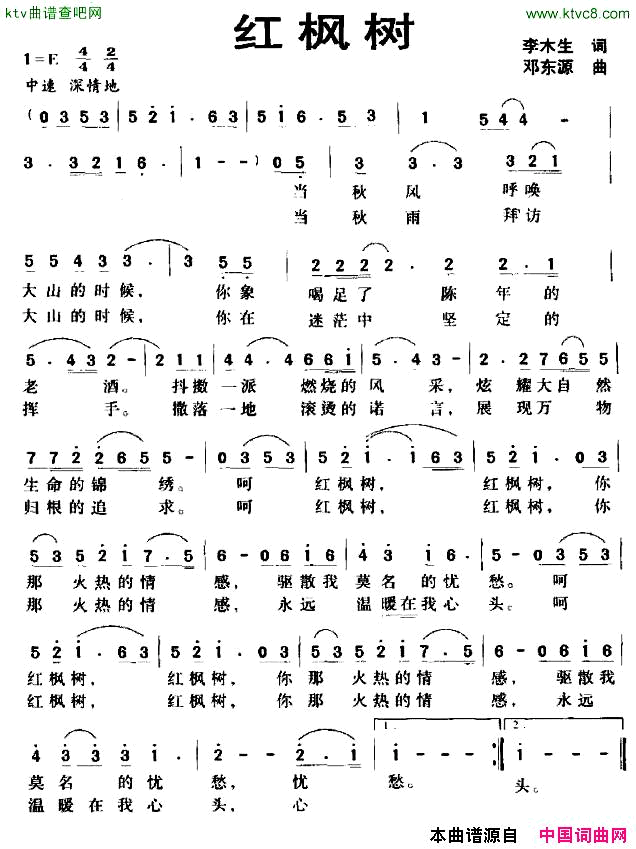 ktv曲谱查吧网 www.ktvc8.com
红枫树
1=E 4/4 2/4 李木生 词
中速 深情地 邓东源 曲
(0353 | 5 2 1. 63 | 5 1 6. 53 | 1 544 -
3. 3216. | 1 - - ) 05 | 3 3. 3 321
当 秋 风 呼唤
当 秋 雨 拜访
5 5433. | 3 55 | 2222 2. 2 2. 1
大山的时候, 你象 喝足了 陈 年的
大山的时候, 你在 迷茫中 坚 定的
5. 43 2 - | 211 | 44. 4 661 | 5. 43 | 2. 27655
老 酒。 抖擞 一派 燃烧的 风 采, 炫耀大自然
挥 手。 撒落 一地 滚烫的 诺 言, 展现万 物
7722655 | 5 - - 0353 | 5 2 1. 163 | 5 2 1. 03
生命的锦 绣。 呵 红枫树, 红枫树, 你
归根的追 求。 呵 红枫树, 红枫树, 你
5352 1 7. 5 | 6 - 0616 | 43 16. | 5 - 0353
那 火热的情 感, 驱散我 莫名 的忧 愁。 呵
那 火热的情 感, 永远 温暖在我心 头。 呵
5 2 1. 163 | 5 2 1. 03 | 5352 1 7. 5 | 6 - 0616
红枫树, 红枫树, 你那 火热的情 感, 驱散我
红枫树, 红枫树, 你那 火热的情 感, 永远
1. 2.
4 3331 | 2 - - 2 | 1 - - - :| 1 - - - ‖
莫名 的忧 愁, 忧 愁。 头。
温暖在我心 头, 心
本曲谱源自 中国词曲网